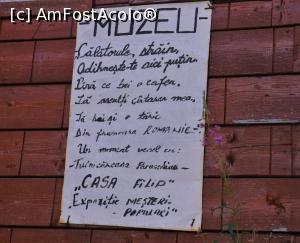 [c] AmFostAcolo®
-MUZEU-
Călătorule, străin,
Odihnește-te aici puțin,
Pînă ce bei o cafea,
Să asculți căutarea mea,
Să bei și o tărie
Din frumoasa ROMÂNIE -
Un moment vesel cu:
-Tulnicăreasa Paraschiva-
"CASA FILIP"
Expoziție MEȘTERI-
- POPULARI"